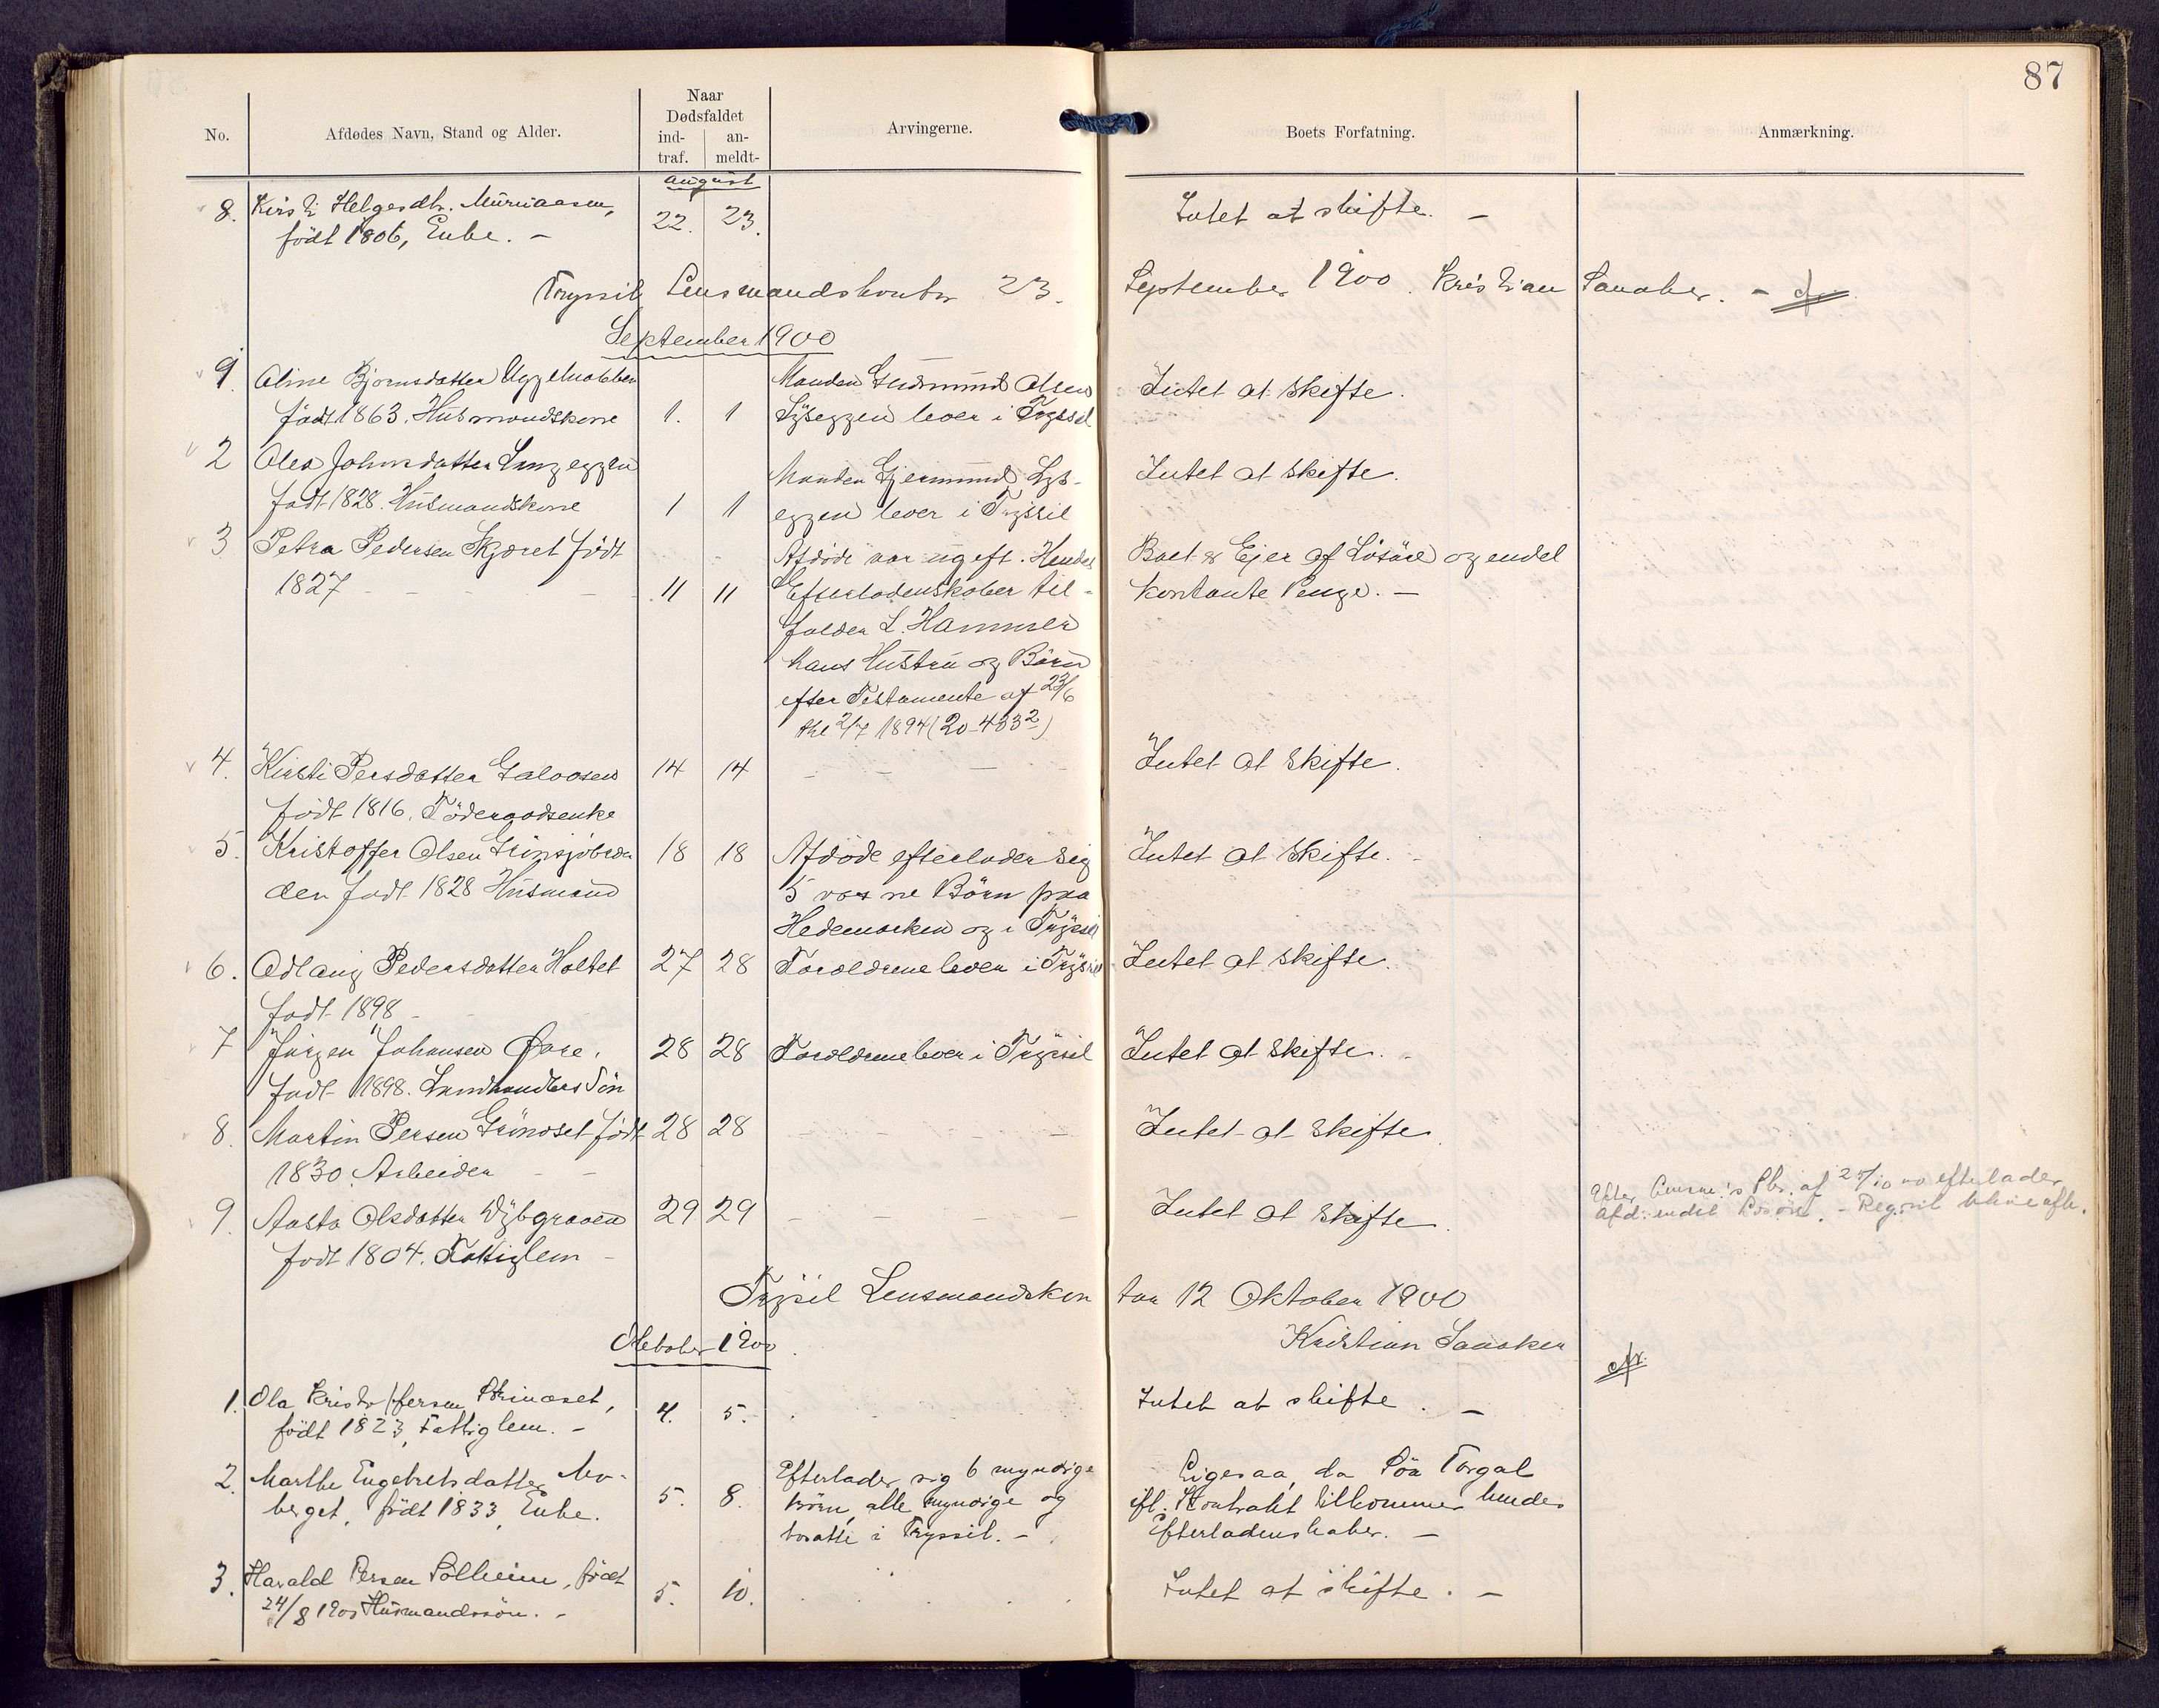 87
No.
Afdødes Navn, Stand og Alder.
Naar
Dødsfaldet
ind-
traf.
an-
meldt-
Arvingerne.
Boets Forfatning.
Anmærkning.
august
8. Kirsti Helgesdtr. Murmaasen, 22. 23. Intet at skifte. -
født 1806, Enke. -
Tryssil Lensmandskontor 23. September 1900. Kristian Sanaker. -
September 1900
1. Oline Bjørnsdatter Manden Gudmund Olsen Intet at skifte.
født 1863. Husmandskone 1. 1 Lyseggen lever i Tryssil
2 Olea Johnsdatter Manden Gjermund Lys- Intet at skifte.
født 1828. Husmandskone 1 1 eggen lever i Trysil
3 Petra Pedersen Skjæret født Afdøde var ugift. Hendes Boet er Ejer af Løsøre og endel
1827 11 11 Efterladenskaber til- kontante Penge. -
falder L. Hammer
hans Hustru og Børn
efter Testamente af 23/6
thl 2/7 1894 (20-433²)
4. Kirsti Persdatter Galaasen 14 14 - - - - Intet at skifte.
født 1816. Føderaadsenke
5. Kristoffer Olsen Grønsjøbraa 18 18 Afdøde efterlader sig Intet at skifte. -
den født 1828 Husmand 5 voxne Børn paa
Hedemarken og i Trysil
6. Odlaug Pedersdatter Holtet 27 28 Forældrene lever i Trysil Intet at skifte.
født 1898 -
7 Jørgen Johansen Øvre. 28 28 Forældrene lever i Trysil Intet at skifte. -
født 1898. Landhandlers Søn
8. Martin Persen Grønoset født 28 28 - - - - Intet at skifte.
1830. Arbeider - -
9. Aasta Olsdatter Nybgraaen 29 29 - - - - Intet at skifte. Efter af 25/10 00 efterlader
født 1804. Fattiglem - Afd. endel Løsøre. -
Trysil Lensmandskon tor 12 Oktober 1900
Oktober 1900. Kristian Sanaker
1. Ola Kristoffersen 4. 5. Intet at skifte. -
født 1823, Fattiglem. -
2. Marthe Engebretsdatter Mo- Efterlader sig 6 myndige Ligesaa, da Søn Torgal
berget, født 1833, Enke. 5. 8. børn, alle myndige og ifl. Kontrakt tilkommer hendes
bosatte i Tryssil. - Efterladenskaber. -
3. Harald Persen Solheim, født 5. 10. Intet at skifte. -
24/8 1900 Husmandssøn. -